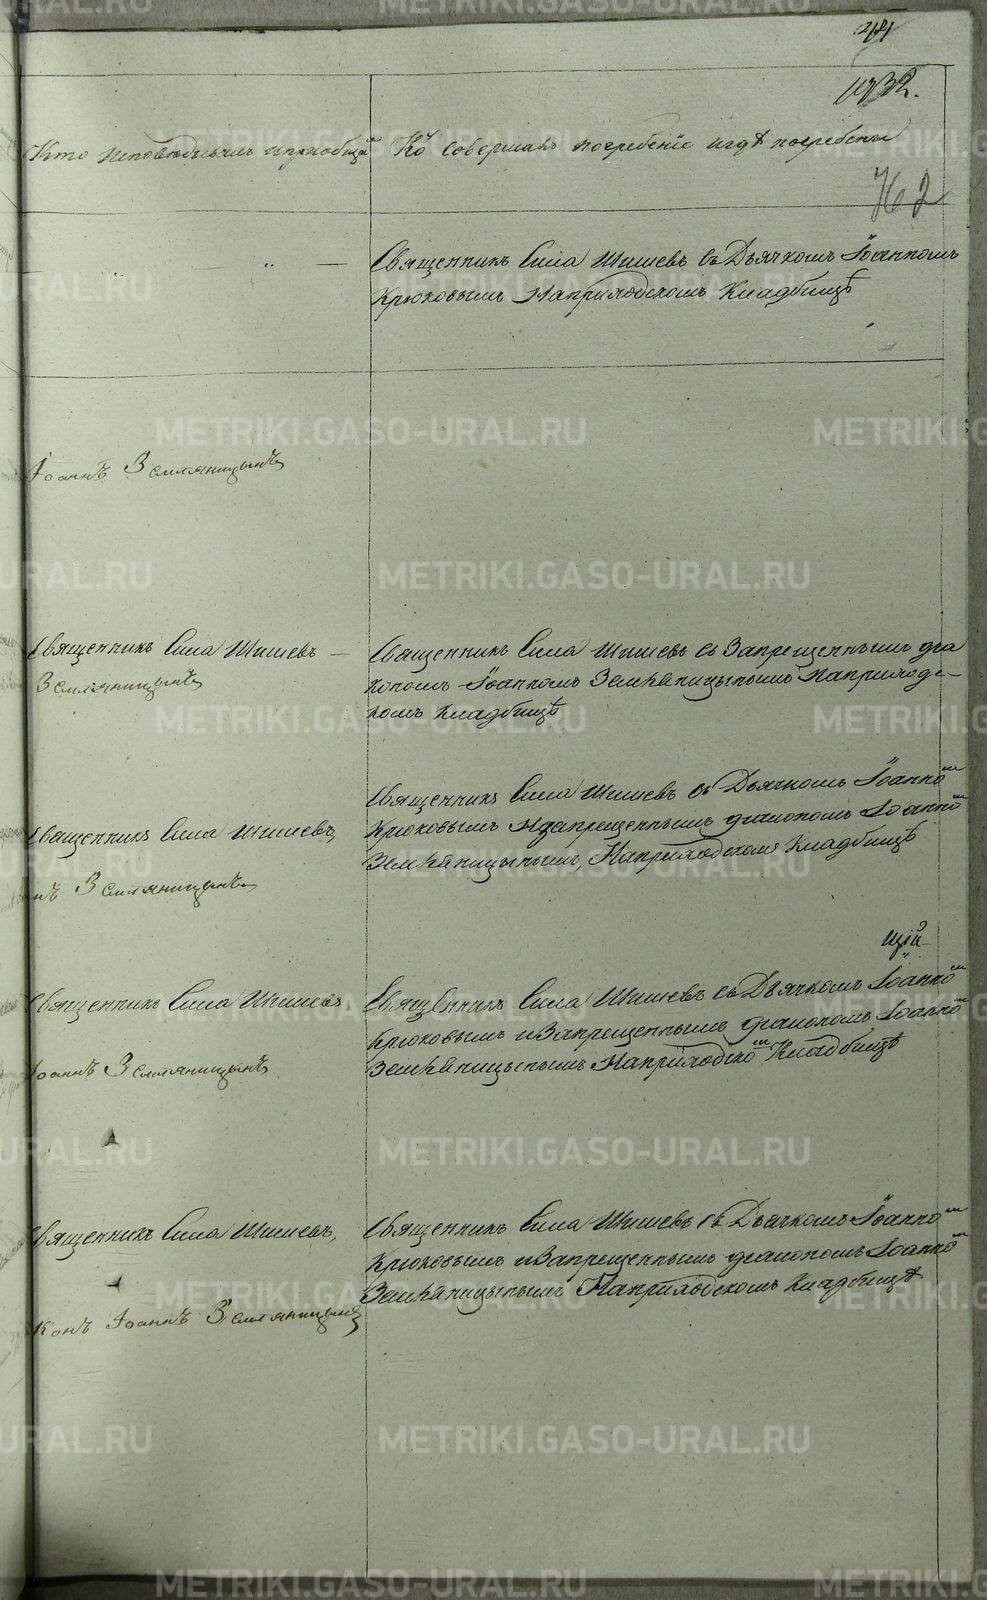 Кто исповѣдывалъ и пріобща
Кто совершалъ погребеніе и гдѣ погребены
Священникъ Сила Шишевъ съ Дьячкомъ Іоанномъ
Крюковымъ На приходскомъ Кладбищѣ
Іоаннъ Земляницынъ
Священникъ Сила Шишевъ
Земляницынъ
Священникъ Сила Шишевъ съ Запрещеннымъ діа
кономъ Іоанномъ Земляницынымъ На приходс-
комъ Кладбищѣ
Священникъ Сила Шишевъ,
нъ Земляницынъ.
Священникъ Сила Шишевъ съ Дьячкомъ Іоанномъ
Крюковымъ и запрещеннымъ діакономъ Іоанномъ
Земляницынымъ, На приходскомъ Кладбищѣ
Священникъ Сила Шишевъ
Іоаннъ Земляницынъ
Священникъ Сила Шишевъ съ Дьячкомъ Іоанномъ
Крюковымъ и Запрещеннымъ діакономъ Іоанномъ
Земляницынымъ На приходскомъ Кладбищѣ
Священникъ Сила Шишевъ,
конъ Іоаннъ Земляницынъ
Священникъ Сила Шишевъ съ Дьячкомъ Іоанномъ
Крюковымъ и Запрещеннымъ діакономъ Іоанномъ
Земляницынымъ На приходскомъ Кладбищѣ
METRIKI.GASO-URAL.RU